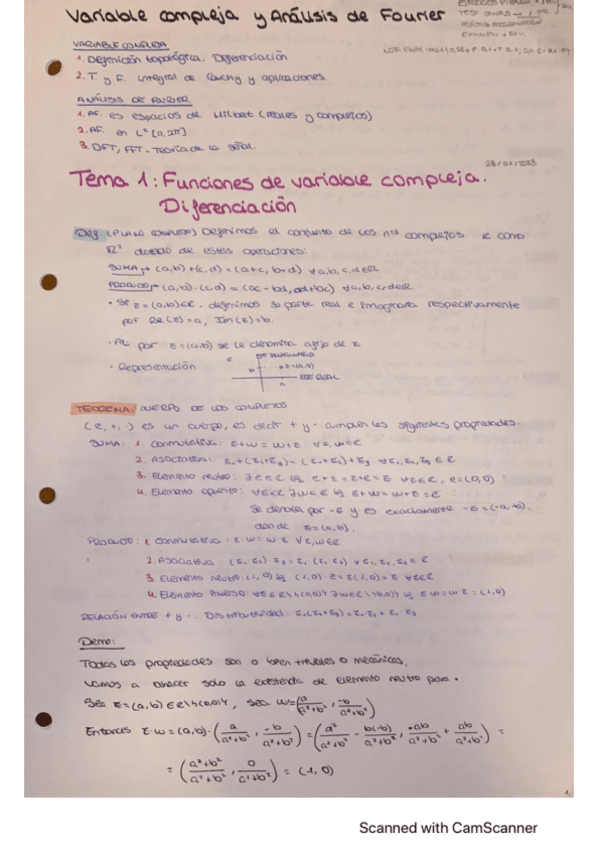 Variable compleja y Análisis de Fourier
VARIABLE COMPLEJA
1. Definición topológica. Diferenciación
2. T. y F. integral de Cauchy y aplicaciones.
ANÁLISIS DE FOURIER
1. AF. es espacios de Hilbert (reales y complejos)
2. AF. en L² [0, 2π]
3. DFT, FFT - Teoría de la señal.
23/01/2023
Tema 1: Funciones de variable compleja.
Diferenciación
Def (PLANO COMPLEJO) Definimos el conjunto de los nos complejos ℂ como
ℝ² dotado de estas operaciones:
SUMA → (a,b)+(c,d) = (a+c, b+d) ∀a,b,c,d∈ℝ
PRODUCTO → (a,b)·(c,d) = (ac-bd, ad+bc) ∀a,b,c,d∈ℝ
· Si z=(a,b)∈ℂ, definimos su parte real e imaginaria respectivamente
por Re(z)=a, Im(z)=b.
· Al par z=(a,b) se le denomina afijo de z
· Representación
ℂ
EJE IMAGINARIO
b
z=(a,b)
EJE REAL
a
TEOREMA: CUERPO DE LOS COMPLEJOS
(ℂ,+,·) es un cuerpo, es decir + y · cumplen las siguientes propiedades.
SUMA: 1. Conmutativa: z+w = w+z ∀z,w∈ℂ
2. Asociativa: z₁+(z₂+z₃) = (z₁+z₂)+z₃ ∀z₁,z₂,z₃∈ℂ
3. Elemento neutro: ∃e∈ℂ tq e+z = z+e = z ∀z∈ℂ, e=(0,0)
4. Elemento opuesto: ∀z∈ℂ ∃w∈ℂ tq z+w = w+z = e
Se denota por -z y es exactamente -z=(-a,-b),
donde z=(a,b).
PRODUCTO: 1. Conmutativa: z·w = w·z ∀z,w∈ℂ
2. Asociativa: (z₁·z₂)·z₃ = z₁·(z₂·z₃) ∀z₁,z₂,z₃∈ℂ
3. Elemento neutro: (1,0) tq (1,0)·z = z·(1,0) = z ∀z∈ℂ
4. Elemento inverso: ∀z∈ℂ\{(0,0)} ∃w∈ℂ\{(0,0)} tq z·w = w·z = (1,0)
RELACIÓN ENTRE + y ·. Distributividad: z₁(z₂+z₃) = z₁z₂+z₁z₃
Demo:
Todas las propiedades son o bien triviales o mecánicas.
Vamos a hacer solo la existencia de elemento neutro para ·
Sea z=(a,b)∈ℂ\{(0,0)}, sea w=(a/(a²+b²), -b/(a²+b²))
Entonces z·w = (a,b)·(a/(a²+b²), -b/(a²+b²)) = (a²/(a²+b²) - b(-b)/(a²+b²), -ab/(a²+b²) + ab/(a²+b²)) =
= ((a²+b²)/(a²+b²), 0/(a²+b²)) = (1,0)
1.
Scanned with CamScanner